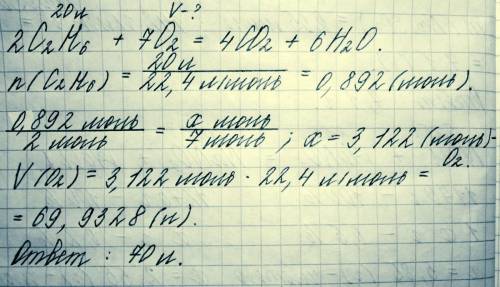 20л V-?
2C₂H₆ + 7O₂ = 4CO₂ + 6H₂O.
n(C₂H₆) = 20л / 22,4 л/моль = 0,892 (моль).
0,892 моль / 2 моль = x моль / 7 моль ; x = 3,122 (моль)-O₂.
V(O₂) = 3,122 моль · 22,4 л/моль =
= 69,9328 (л).
Ответ: 70 л.